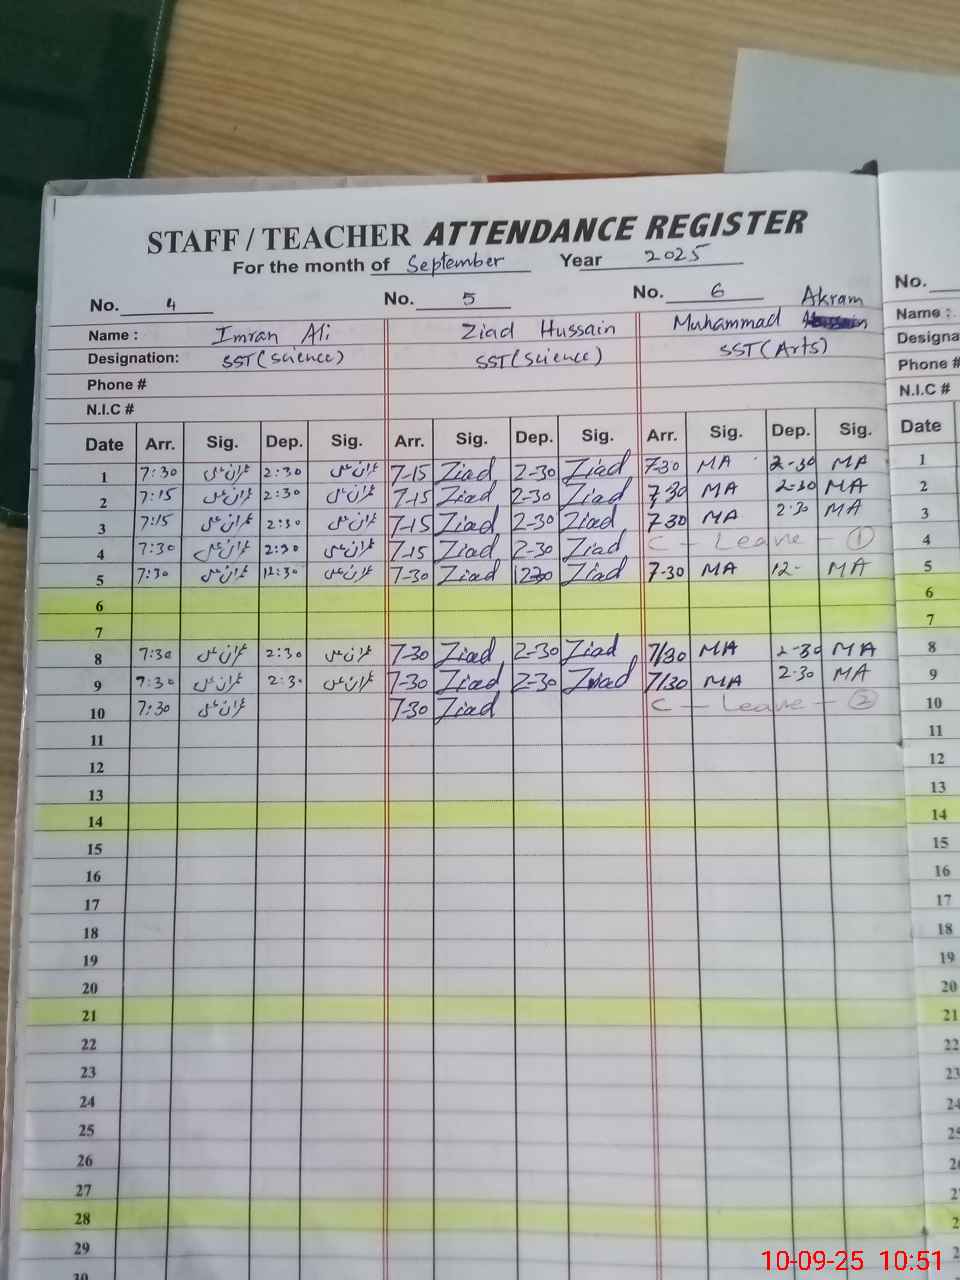 STAFF / TEACHER ATTENDANCE REGISTER
For the month of September Year 2025
No. 4 No. 5 No. 6 Akram
Name : Imran Ali Ziad Hussain Muhammad
Designation: SST(Science) SST(Science) SST(Arts)
Phone #
N.I.C #
Date Arr. Sig. Dep. Sig. Arr. Sig. Dep. Sig. Arr. Sig. Dep. Sig.
1 7:30 عمران علی 2:30 عمران علی 7-15 Ziad 2-30 Ziad 7-30 MA 2-30 MA
2 7:15 عمران علی 2:30 عمران علی 7-15 Ziad 2-30 Ziad 7-30 MA 2-30 MA
3 7:15 عمران علی 2:30 عمران علی 7-15 Ziad 2-30 Ziad 7-30 MA 2-30 MA
4 7:30 عمران علی 2:30 عمران علی 7-15 Ziad 2-30 Ziad C - Leave - 1
5 7:30 عمران علی 12:30 عمران علی 7-30 Ziad 1230 Ziad 7-30 MA 12- MA
6
7
8 7:30 عمران علی 2:30 عمران علی 7-30 Ziad 2-30 Ziad 7/30 MA 2-30 MA
9 7:30 عمران علی 2:30 عمران علی 7-30 Ziad 2-30 Ziad 7/30 MA 2-30 MA
10 7:30 عمران علی 7-30 Ziad C - Leave - 2
11
12
13
14
15
16
17
18
19
20
21
22
23
24
25
26
27
28
29
30
No.
Name :
Designa
Phone #
N.I.C #
Date
1
2
3
4
5
6
7
8
9
10
11
12
13
14
15
16
17
18
19
20
21
22
23
24
25
10-09-25 10:51